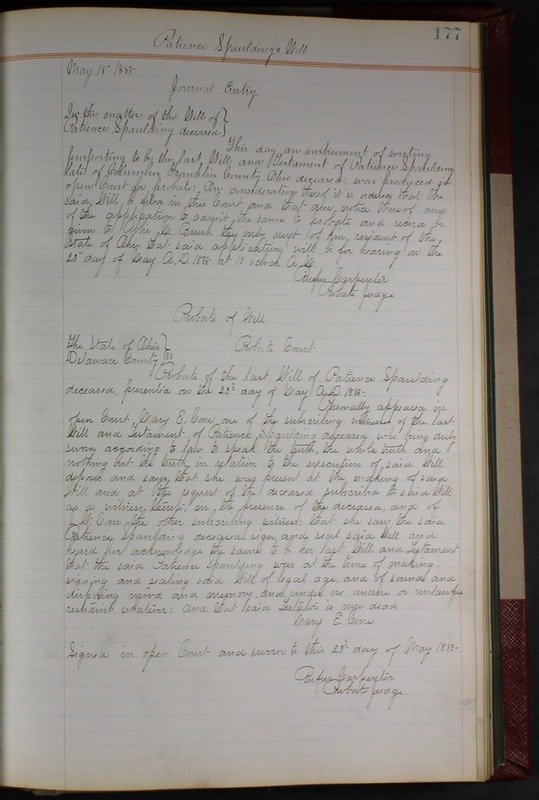 177
Patience Spaulding's Will
May 18" 1883-
Journal Entry
In the matter of the Will of
Patience Spaulding deceased
This day an instrument of writing
purporting to be the last Will and Testament of Patience Spaulding
late of Columbus Franklin County Ohio deceased, was produced in
open Court for probate; On consideration thereof it is ordered that the
said Will, be filed in this Court and that due notice thereof and
of the application to admit the same to probate and record, be
given to the only next of kin, resident of the
State of Ohio, that said application will be for hearing on the
23" day of May A.D. 1883- at 10 oclock A.M.
Rufus Carpenter
Probate Judge
Probate of Will
The State of Ohio
Delaware County } ss Probate Court
Probate of the last Will of Patience Spaulding
deceased, presented on the 23d day of May A.D. 1883-
Personally appeared in
open Court Mary E. Cone one of the subscribing witnesses of the last
Will and Testament of Patience Spaulding deceased who being duly
sworn according to law to speak the truth the whole truth and
nothing but the truth in relation to the execution of said Will
deposes and says, that she was present at the making of said
Will and at the request of the deceased subscribed to said Will
as a witness thereof, in the presence of the deceased, and of
Cone the other subscribing witness: that she saw the said
Patience Spaulding deceased sign, and seal said Will and
heard her acknowledge the same to be her last Will and Testament
that the said Patience Spaulding was at the time of making
signing and sealing said Will of legal age, and of sound and
disposing mind and memory, and under no undue or unlawful
restraint whatever: and that said Testator is now dead
Mary E. Cone
Signed in open Court and sworn to this 23d day of May 1883-
Rufus Carpenter
Probate Judge